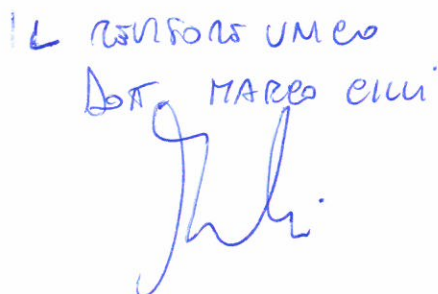 IL REVISORE UNICO
DOTT. MARCO CILLI